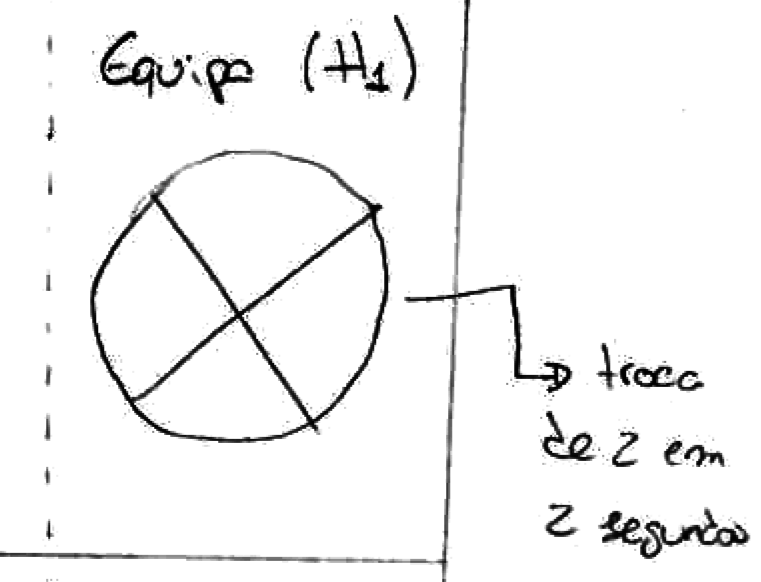 Equipa (H1)
troca
de 2 em
2 segundos